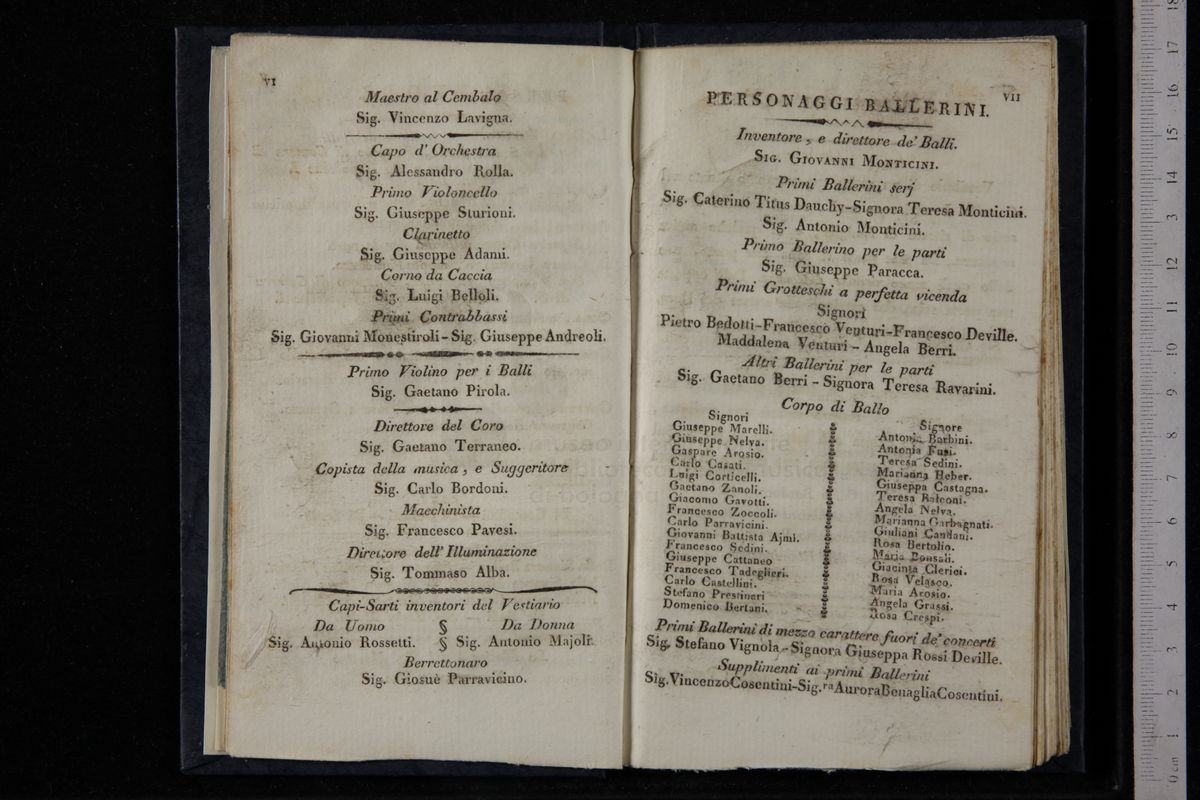 VI
Maestro al Cembalo
Sig. Vincenzo Lavigna.
Capo d'Orchestra
Sig. Alessandro Rolla.
Primo Violoncello
Sig. Giuseppe Sturioni.
Clarinetto
Sig. Giuseppe Adami.
Corno da Caccia
Sig. Luigi Belloli.
Primi Contrabbassi
Sig. Giovanni Monestiroli - Sig. Giuseppe Andreoli.
Primo Violino per i Balli
Sig. Gaetano Pirola.
Direttore del Coro
Sig. Gaetano Terraneo.
Copista della musica, e Suggeritore
Sig. Carlo Bordoni.
Macchinista
Sig. Francesco Pavesi.
Direttore dell'Illuminazione
Sig. Tommaso Alba.
Capi-Sarti inventori del Vestiario
Da Uomo § Da Donna
Sig. Antonio Rossetti. § Sig. Antonio Majoli.
Berrettonaro
Sig. Giosuè Parravicino.
VII
PERSONAGGI BALLERINI.
Inventore, e direttore de' Balli.
SIG. GIOVANNI MONTICINI.
Primi Ballerini serj
Sig. Caterino Titus Dauchy-Signora Teresa Monticini.
Sig. Antonio Monticini.
Primo Ballerino per le parti
Sig. Giuseppe Paracca.
Primi Grotteschi a perfetta vicenda
Signori
Pietro Bedotti-Francesco Venturi-Francesco Deville.
Maddalena Venturi - Angela Berri.
Altri Ballerini per le parti
Sig. Gaetano Berri - Signora Teresa Ravarini.
Corpo di Ballo
Signori
Giuseppe Marelli.
Giuseppe Nelva.
Gaspare Arosio.
Carlo Casati.
Luigi Corticelli.
Gaetano Zanoli.
Giacomo Gavotti.
Francesco Zoccoli.
Carlo Parravicini.
Giovanni Battista Ajmi.
Francesco Sedini.
Giuseppe Cattaneo
Francesco Tadeglieri.
Carlo Castellini.
Stefano Prestinari
Domenico Bertani.
Signore
Antonia Barbini.
Antonia Fusi.
Teresa Sedini.
Marianna Heber.
Giuseppa Castagna.
Teresa Balconi.
Angela Nelva.
Marianna Garbagnati.
Giuliani Candani.
Rosa Bertolio.
Maria Bonsali.
Giacinta Clerici.
Rosa Velasco.
Maria Arosio.
Angela Grassi.
Rosa Crespi.
Primi Ballerini di mezzo carattere fuori de' concerti
Sig. Stefano Vignola - Signora Giuseppa Rossi Deville.
Supplimenti ai primi Ballerini
Sig. Vincenzo Cosentini-Sig.ra Aurora Benaglia Cosentini.
0 cm 1 2 3 4 5 6 7 8 9 10 11 12 13 14 15 16 17 18